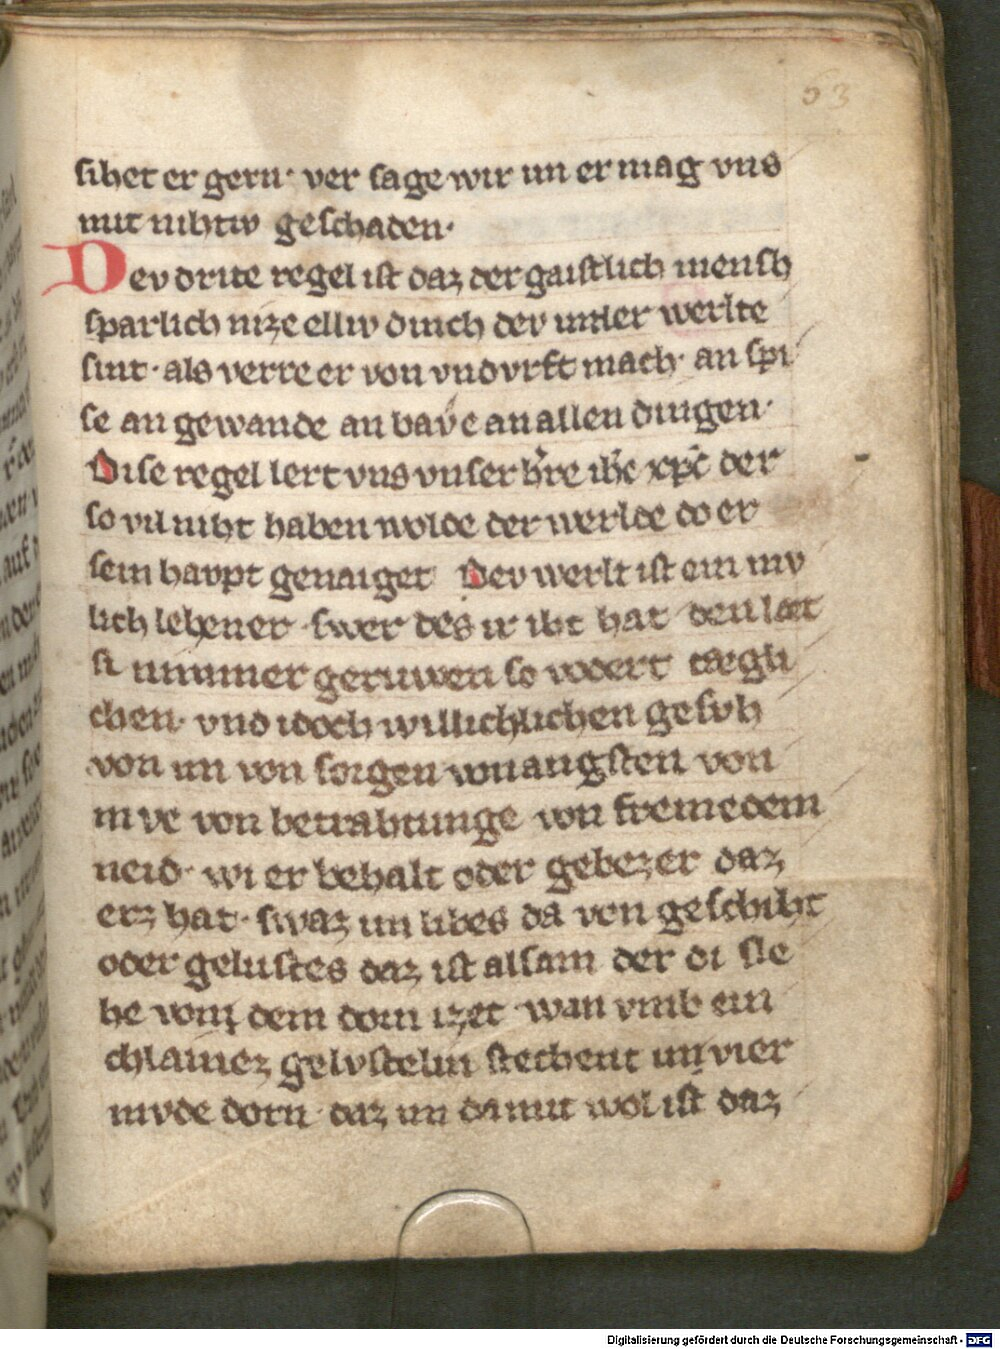 63
sihet er gern· ver sage wir im er mag vns
mit nihtiv geschaden·
Dev drite regel ist daz der gaistlich mensh
sparlich nize elliv dinch dev in der werlte
sint· als verre er von vndvrft mach· an spi
se an gewande an bave an allen dingen·
Dise regel lert vns vnser hre ihc xpc der
so vil niht haben wolde der werlde do er
sein havpt genaiget Dev werlt ist ein mv
lich lehener swer des ir iht hat den læt
si nimmer geruwen so vodert tægli
chen· vnd idoch willichlichen gesvh
von im von sorgen von angsten von
mve von betrahtunge von fremedem
neid· wi er behalt oder gebezer daz
erz hat· swaz im libes da von geschiht
oder gelustes daz ist alsam der di sle
he vom dem dorn izet wan vmb ein
chlainez gelvstelin stechent im vier
mvde dorn daz im damit wol ist daz
Digitalisierung gefördert durch die Deutsche Forschungsgemeinschaft - DFG